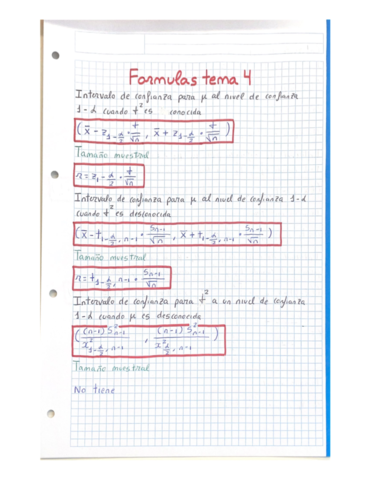 Formulas tema 4
Intervalo de confianza para μ al nivel de confianza
1-α cuando σ² es conocida
(x̄ - z₁₋α/₂ · σ/√n , x̄ + z₁₋α/₂ · σ/√n)
Tamaño muestral
n = z₁₋α/₂ · σ/√n
Intervalo de confianza para μ al nivel de confianza 1-α
cuando σ² es desconocida
(x̄ - t₁₋α/₂, n-1 · Sn-1/√n , x̄ + t₁₋α/₂, n-1 · Sn-1/√n)
Tamaño muestral
n = t₁₋α/₂, n-1 · Sn-1/√n
Intervalo de confianza para σ² a un nivel de confianza
1-α cuando μ es desconocida
((n-1) S²n-1 / x²₁₋α/₂, n-1 , (n-1) S²n-1 / x²α/₂, n-1)
Tamaño muestral
No tiene